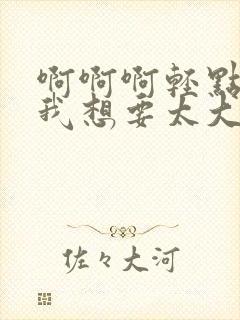 啊啊啊轻點
我想要太大
佐々大河